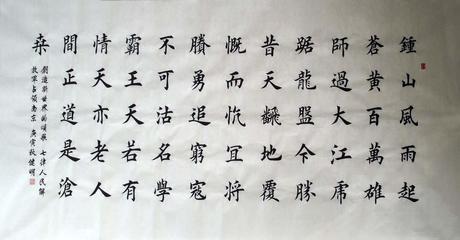 鍾山風雨起
蒼黃百萬雄
師過大江虎
踞龍盤今勝
昔天飜地覆
慨而忼宜將
賸勇追窮寇
不可沽名學
霸王天若有
情天亦老人
間正道是滄
桑
創造新世界的頌歌 七律人民解
放軍占領南京 庚寅秋健明